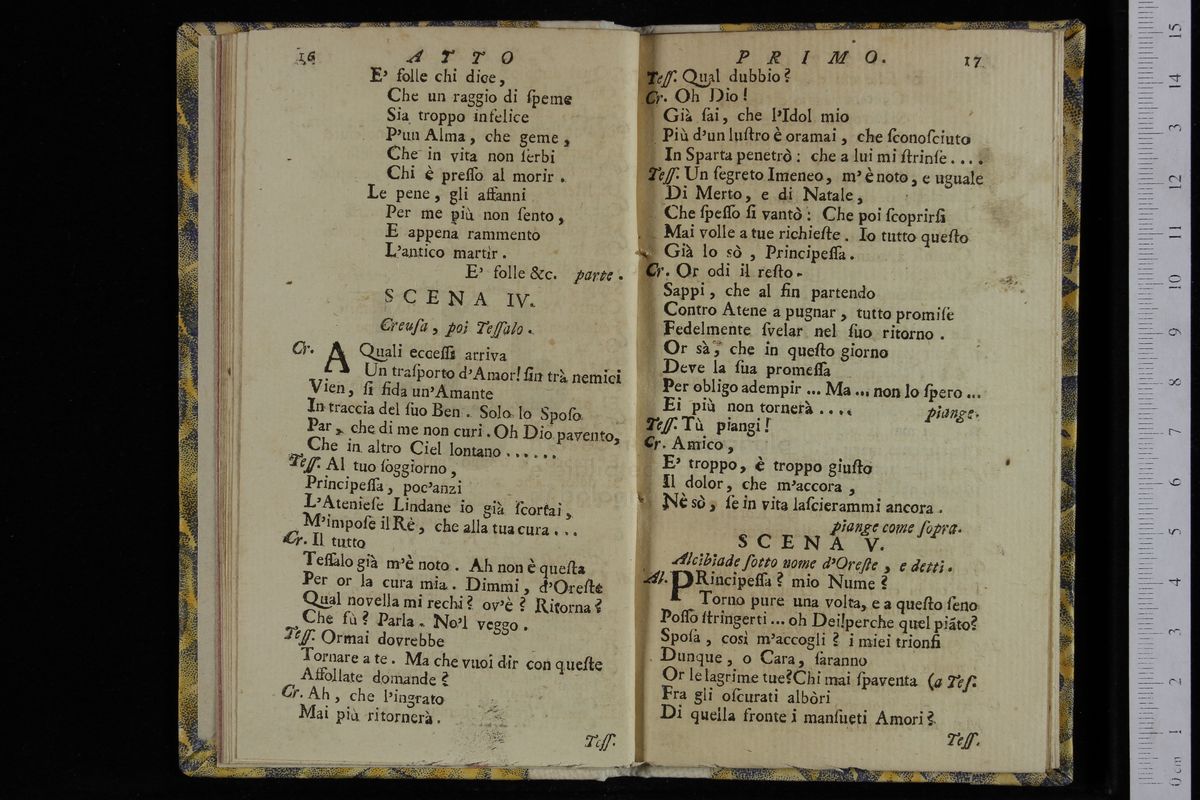 16 ATTO
E' folle chi dice,
Che un raggio di ſpeme
Sia troppo infelice
P'un Alma, che geme,
Che in vita non ſerbi
Chi è preſſo al morir.
Le pene, gli affanni
Per me più non ſento,
E appena rammento
L'antico martir.
E' folle &c. parte.
SCENA IV.
Creuſa, poi Teſſalo.
Cr. A Quali ecceſſi arriva
Un traſporto d'Amor! ſin trà nemici
Vien, ſi fida un'Amante
In traccia del ſuo Ben. Solo lo Spoſo
Par, che di me non curi. Oh Dio pavento,
Che in altro Ciel lontano ......
Teſſ. Al tuo ſoggiorno,
Principeſſa, poc'anzi
L'Atenieſe Lindane io già ſcortai,
M'impoſe il Rè, che alla tua cura ...
Cr. Il tutto
Teſſalo già m'è noto. Ah non è queſta
Per or la cura mia. Dimmi, d'Oreſte
Qual novella mi rechi? ov'è? Ritorna?
Che fù? Parla. No'l veggo.
Teſſ. Ormai dovrebbe
Tornare a te. Ma che vuoi dir con queſte
Affollate domande?
Cr. Ah, che l'ingrato
Mai più ritornerà.
Teſſ.
PRIMO. 17
Teſſ. Qual dubbio?
Cr. Oh Dio!
Già ſai, che l'Idol mio
Più d'un luſtro è oramai, che ſconoſciuto
In Sparta penetrò: che a lui mi ſtrinſe....
Teſſ. Un ſegreto Imeneo, m'è noto, e uguale
Di Merto, e di Natale,
Che ſpeſſo ſi vantò: Che poi ſcoprirſi
Mai volle a tue richieſte. Io tutto queſto
Già lo sò, Principeſſa.
Cr. Or odi il reſto.
Sappi, che al fin partendo
Contro Atene a pugnar, tutto promiſe
Fedelmente ſvelar nel ſuo ritorno.
Or sà, che in queſto giorno
Deve la ſua promeſſa
Per obligo adempir ... Ma ... non lo ſpero ...
Ei più non tornerà .... piange.
Teſſ. Tù piangi!
Cr. Amico,
E' troppo, è troppo giuſto
Il dolor, che m'accora,
Nè sò, ſe in vita laſcierammi ancora.
piange come ſopra.
SCENA V.
Alcibiade ſotto nome d'Oreſte, e detti.
Al. PRincipeſſa? mio Nume?
Torno pure una volta, e a queſto ſeno
Poſſo ſtringerti ... oh Dei! perche quel piāto?
Spoſa, così m'accogli? i miei trionfi
Dunque, o Cara, ſaranno
Or le lagrime tue? Chi mai ſpaventa (a Teſ.
Fra gli oſcurati albòri
Di quella fronte i manſueti Amori?
Teſſ.
15
14
13
12
11
10
9
8
7
6
5
4
3
2
1
0 cm